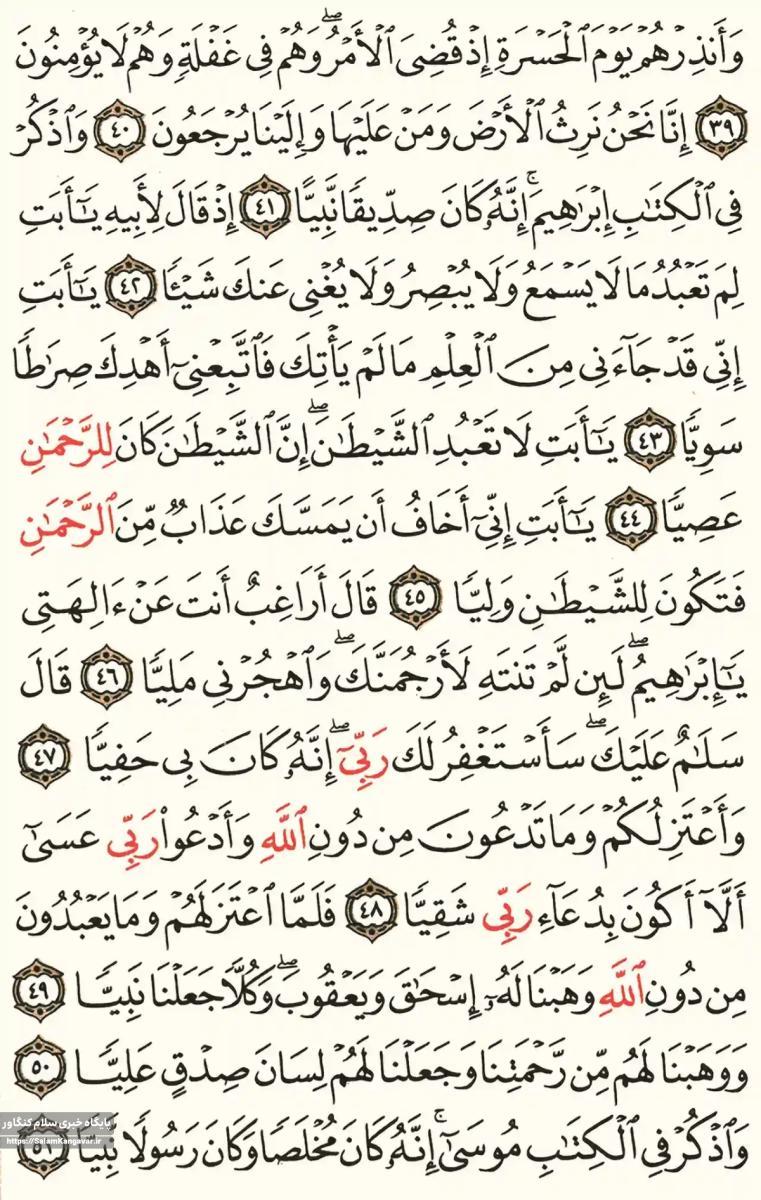 وَأَنذِرْهُمْ يَوْمَ ٱلْحَسْرَةِ إِذْ قُضِىَ ٱلْأَمْرُ ۖ وَهُمْ فِى غَفْلَةٍ وَهُمْ لَا يُؤْمِنُونَ
﴿٣٩﴾ إِنَّا نَحْنُ نَرِثُ ٱلْأَرْضَ وَمَنْ عَلَيْهَا وَإِلَيْنَا يُرْجَعُونَ ﴿٤٠﴾ وَٱذْكُرْ
فِى ٱلْكِتَـٰبِ إِبْرَٰهِيمَ ۚ إِنَّهُۥ كَانَ صِدِّيقًا نَّبِيًّا ﴿٤١﴾ إِذْ قَالَ لِأَبِيهِ يَـٰٓأَبَتِ
لِمَ تَعْبُدُ مَا لَا يَسْمَعُ وَلَا يُبْصِرُ وَلَا يُغْنِى عَنكَ شَيْـًٔا ﴿٤٢﴾ يَـٰٓأَبَتِ
إِنِّى قَدْ جَآءَنِى مِنَ ٱلْعِلْمِ مَا لَمْ يَأْتِكَ فَٱتَّبِعْنِىٓ أَهْدِكَ صِرَٰطًا
سَوِيًّا ﴿٤٣﴾ يَـٰٓأَبَتِ لَا تَعْبُدِ ٱلشَّيْطَـٰنَ ۖ إِنَّ ٱلشَّيْطَـٰنَ كَانَ لِلرَّحْمَـٰنِ
عَصِيًّا ﴿٤٤﴾ يَـٰٓأَبَتِ إِنِّىٓ أَخَافُ أَن يَمَسَّكَ عَذَابٌ مِّنَ ٱلرَّحْمَـٰنِ
فَتَكُونَ لِلشَّيْطَـٰنِ وَلِيًّا ﴿٤٥﴾ قَالَ أَرَاغِبٌ أَنتَ عَنْ ءَالِهَتِى
يَـٰٓإِبْرَٰهِيمُ ۖ لَئِن لَّمْ تَنتَهِ لَأَرْجُمَنَّكَ ۖ وَٱهْجُرْنِى مَلِيًّا ﴿٤٦﴾ قَالَ
سَلَـٰمٌ عَلَيْكَ ۖ سَأَسْتَغْفِرُ لَكَ رَبِّىٓ ۖ إِنَّهُۥ كَانَ بِى حَفِيًّا ﴿٤٧﴾
وَأَعْتَزِلُكُمْ وَمَا تَدْعُونَ مِن دُونِ ٱللَّهِ وَأَدْعُوا۟ رَبِّى عَسَىٰٓ
أَلَّآ أَكُونَ بِدُعَآءِ رَبِّى شَقِيًّا ﴿٤٨﴾ فَلَمَّا ٱعْتَزَلَهُمْ وَمَا يَعْبُدُونَ
مِن دُونِ ٱللَّهِ وَهَبْنَا لَهُۥٓ إِسْحَـٰقَ وَيَعْقُوبَ ۖ وَكُلًّا جَعَلْنَا نَبِيًّا ﴿٤٩﴾
وَوَهَبْنَا لَهُم مِّن رَّحْمَتِنَا وَجَعَلْنَا لَهُمْ لِسَانَ صِدْقٍ عَلِيًّا ﴿٥٠﴾
وَٱذْكُرْ فِى ٱلْكِتَـٰبِ مُوسَىٰٓ ۚ إِنَّهُۥ كَانَ مُخْلَصًا وَكَانَ رَسُولًا نَّبِيًّا ﴿٥١﴾
پایگاه خبری سلام کنگاور
https://SalamKangavar.ir